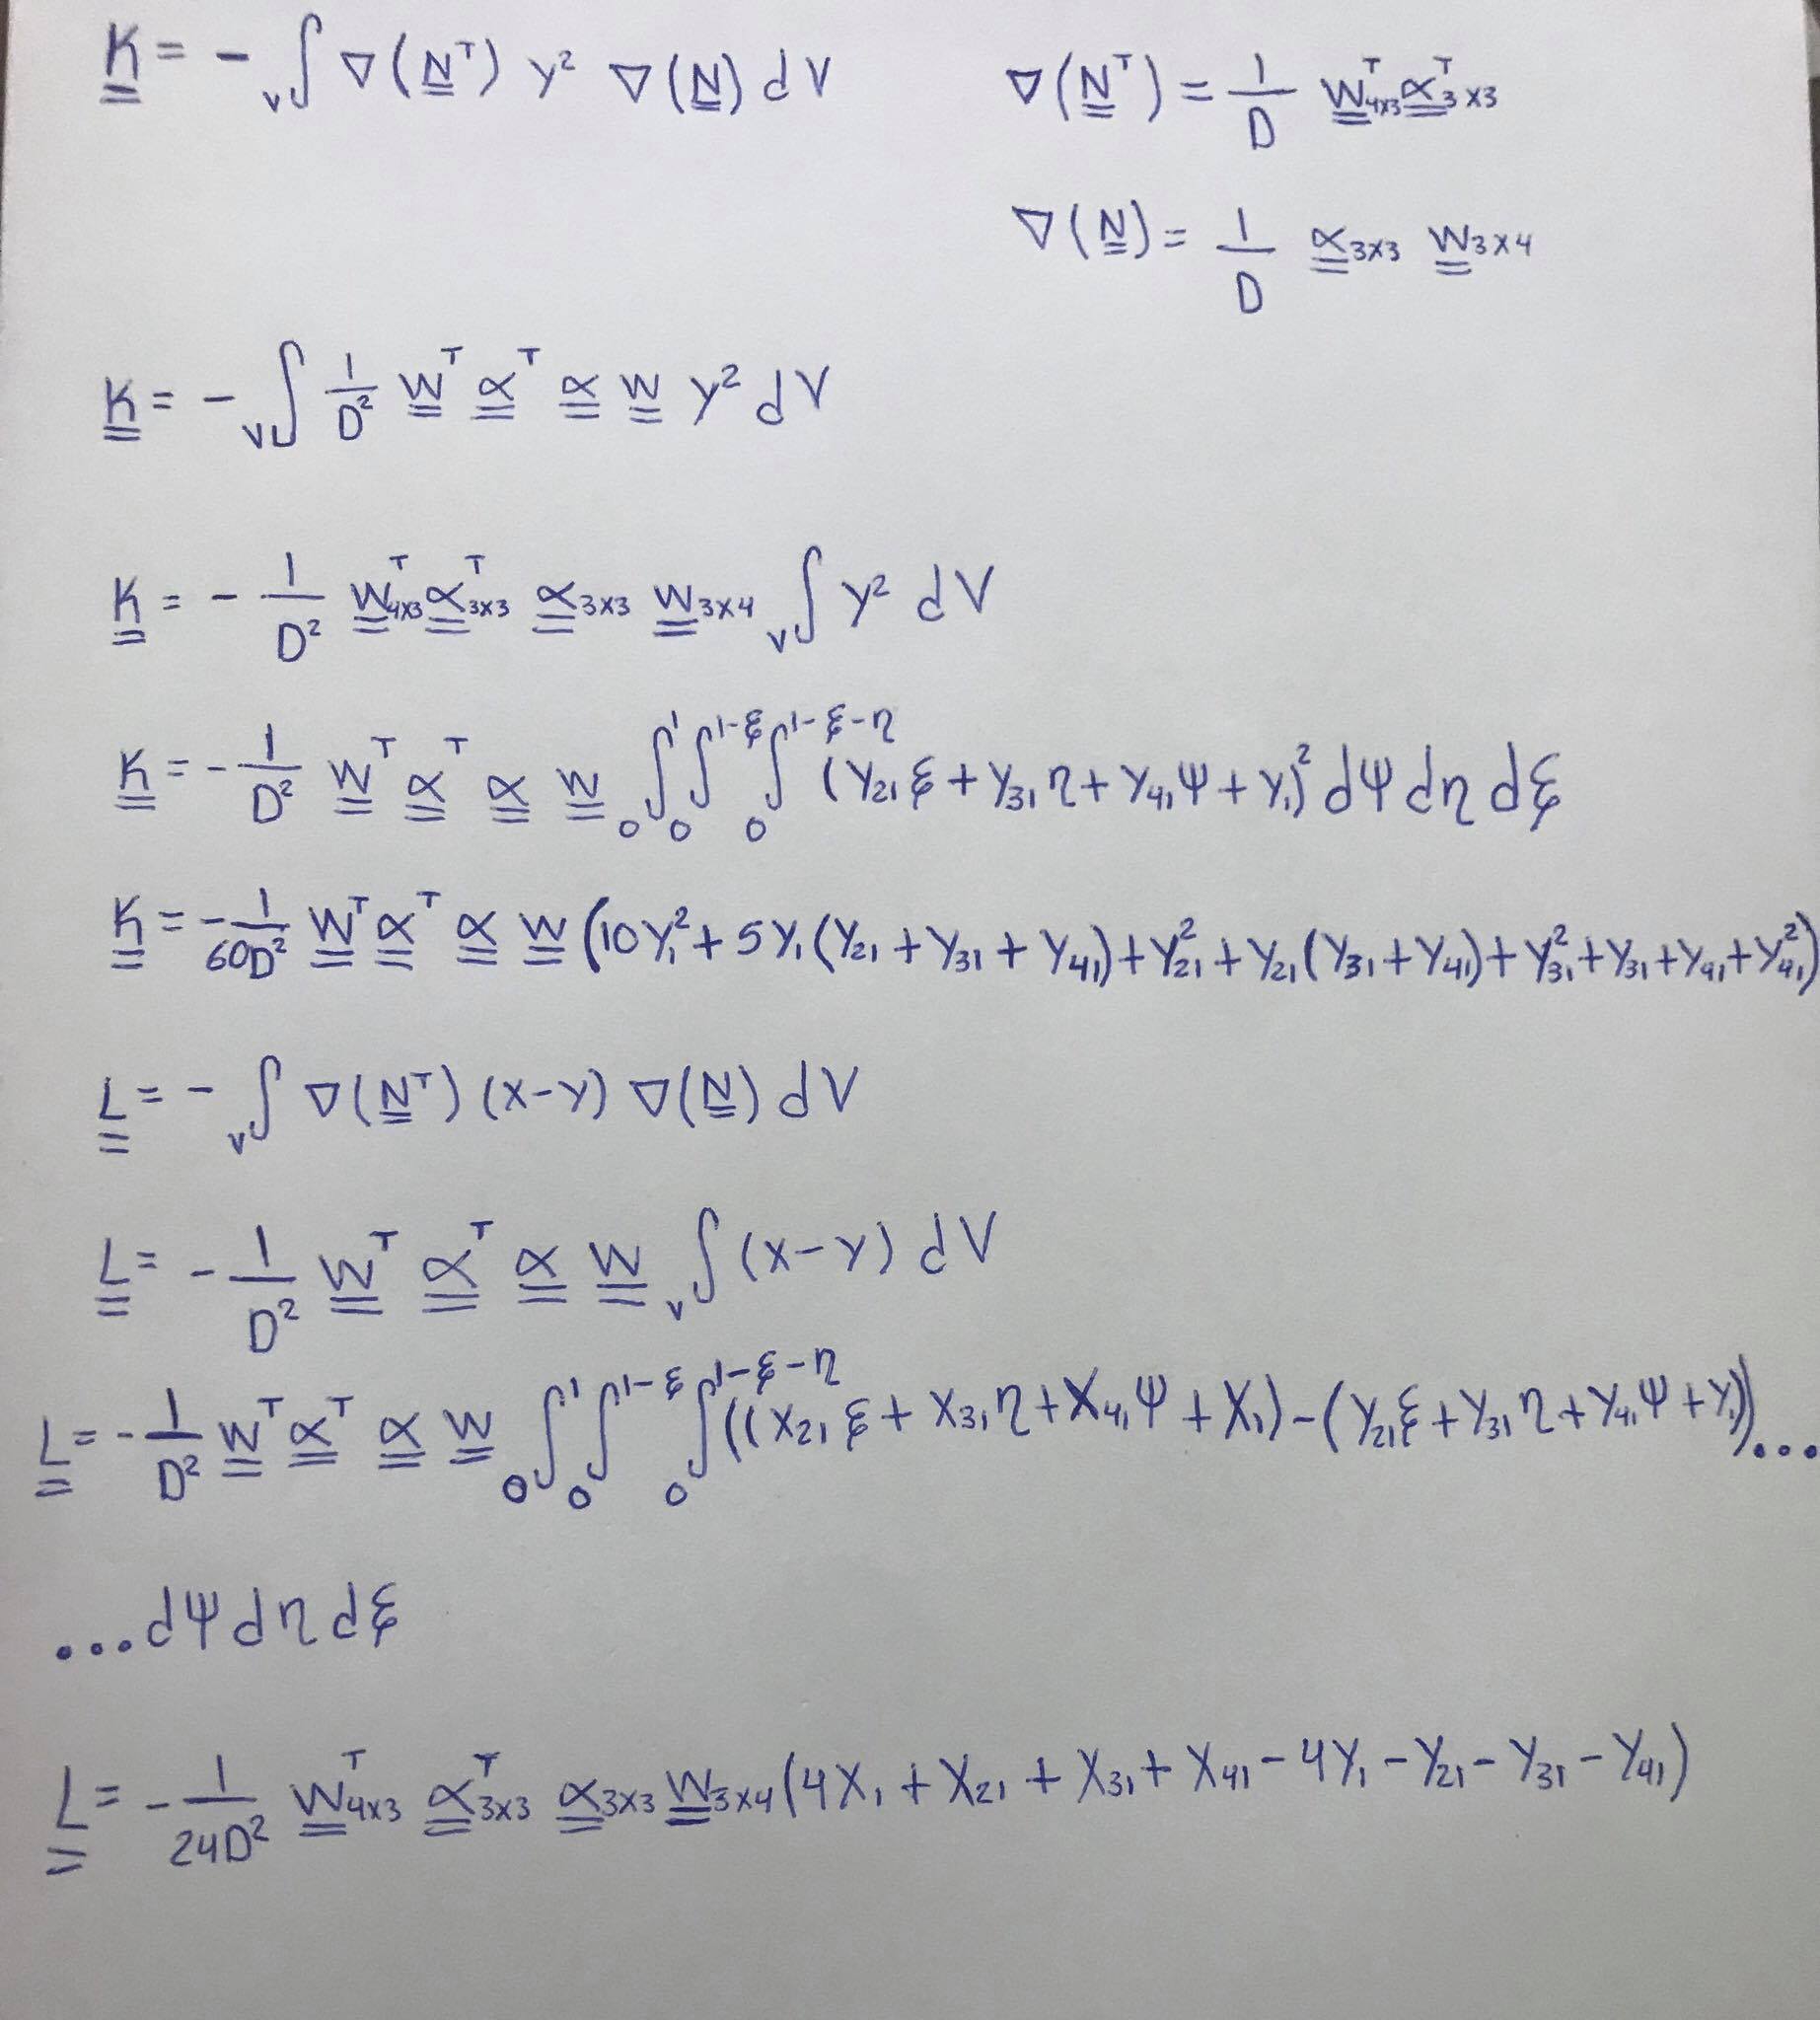 K = - ᵥ∫ ∇(Nᵀ) y² ∇(N) dV    ∇(Nᵀ) = 1/D Wᵀ₄ₓ₃ αᵀ₃ₓ₃
∇(N) = 1/D α₃ₓ₃ W₃ₓ₄
K = - ᵥ∫ 1/D² Wᵀ αᵀ α W y² dV
K = - 1/D² Wᵀ₄ₓ₃ αᵀ₃ₓ₃ α₃ₓ₃ W₃ₓ₄ ᵥ∫ y² dV
K = - 1/D² Wᵀ αᵀ α W ₀∫¹ ₀∫¹⁻ξ ₀∫¹⁻ξ⁻η (y₂₁ξ + y₃₁η + y₄₁ψ + y₁)² dψ dη dξ
K = - 1/60D² Wᵀ αᵀ α W (10y₁² + 5y₁(y₂₁ + y₃₁ + y₄₁) + y₂₁² + y₂₁(y₃₁ + y₄₁) + y₃₁² + y₃₁ + y₄₁ + y₄₁²)
L = - ᵥ∫ ∇(Nᵀ) (x-y) ∇(N) dV
L = - 1/D² Wᵀ αᵀ α W ᵥ∫ (x-y) dV
L = - 1/D² Wᵀ αᵀ α W ₀∫¹ ₀∫¹⁻ξ ₀∫¹⁻ξ⁻η ((x₂₁ξ + x₃₁η + x₄₁ψ + x₁) - (y₂₁ξ + y₃₁η + y₄₁ψ + y₁))...
...dψ dη dξ
L = - 1/24D² Wᵀ₄ₓ₃ αᵀ₃ₓ₃ α₃ₓ₃ W₃ₓ₄ (4x₁ + x₂₁ + x₃₁ + x₄₁ - 4y₁ - y₂₁ - y₃₁ - y₄₁)